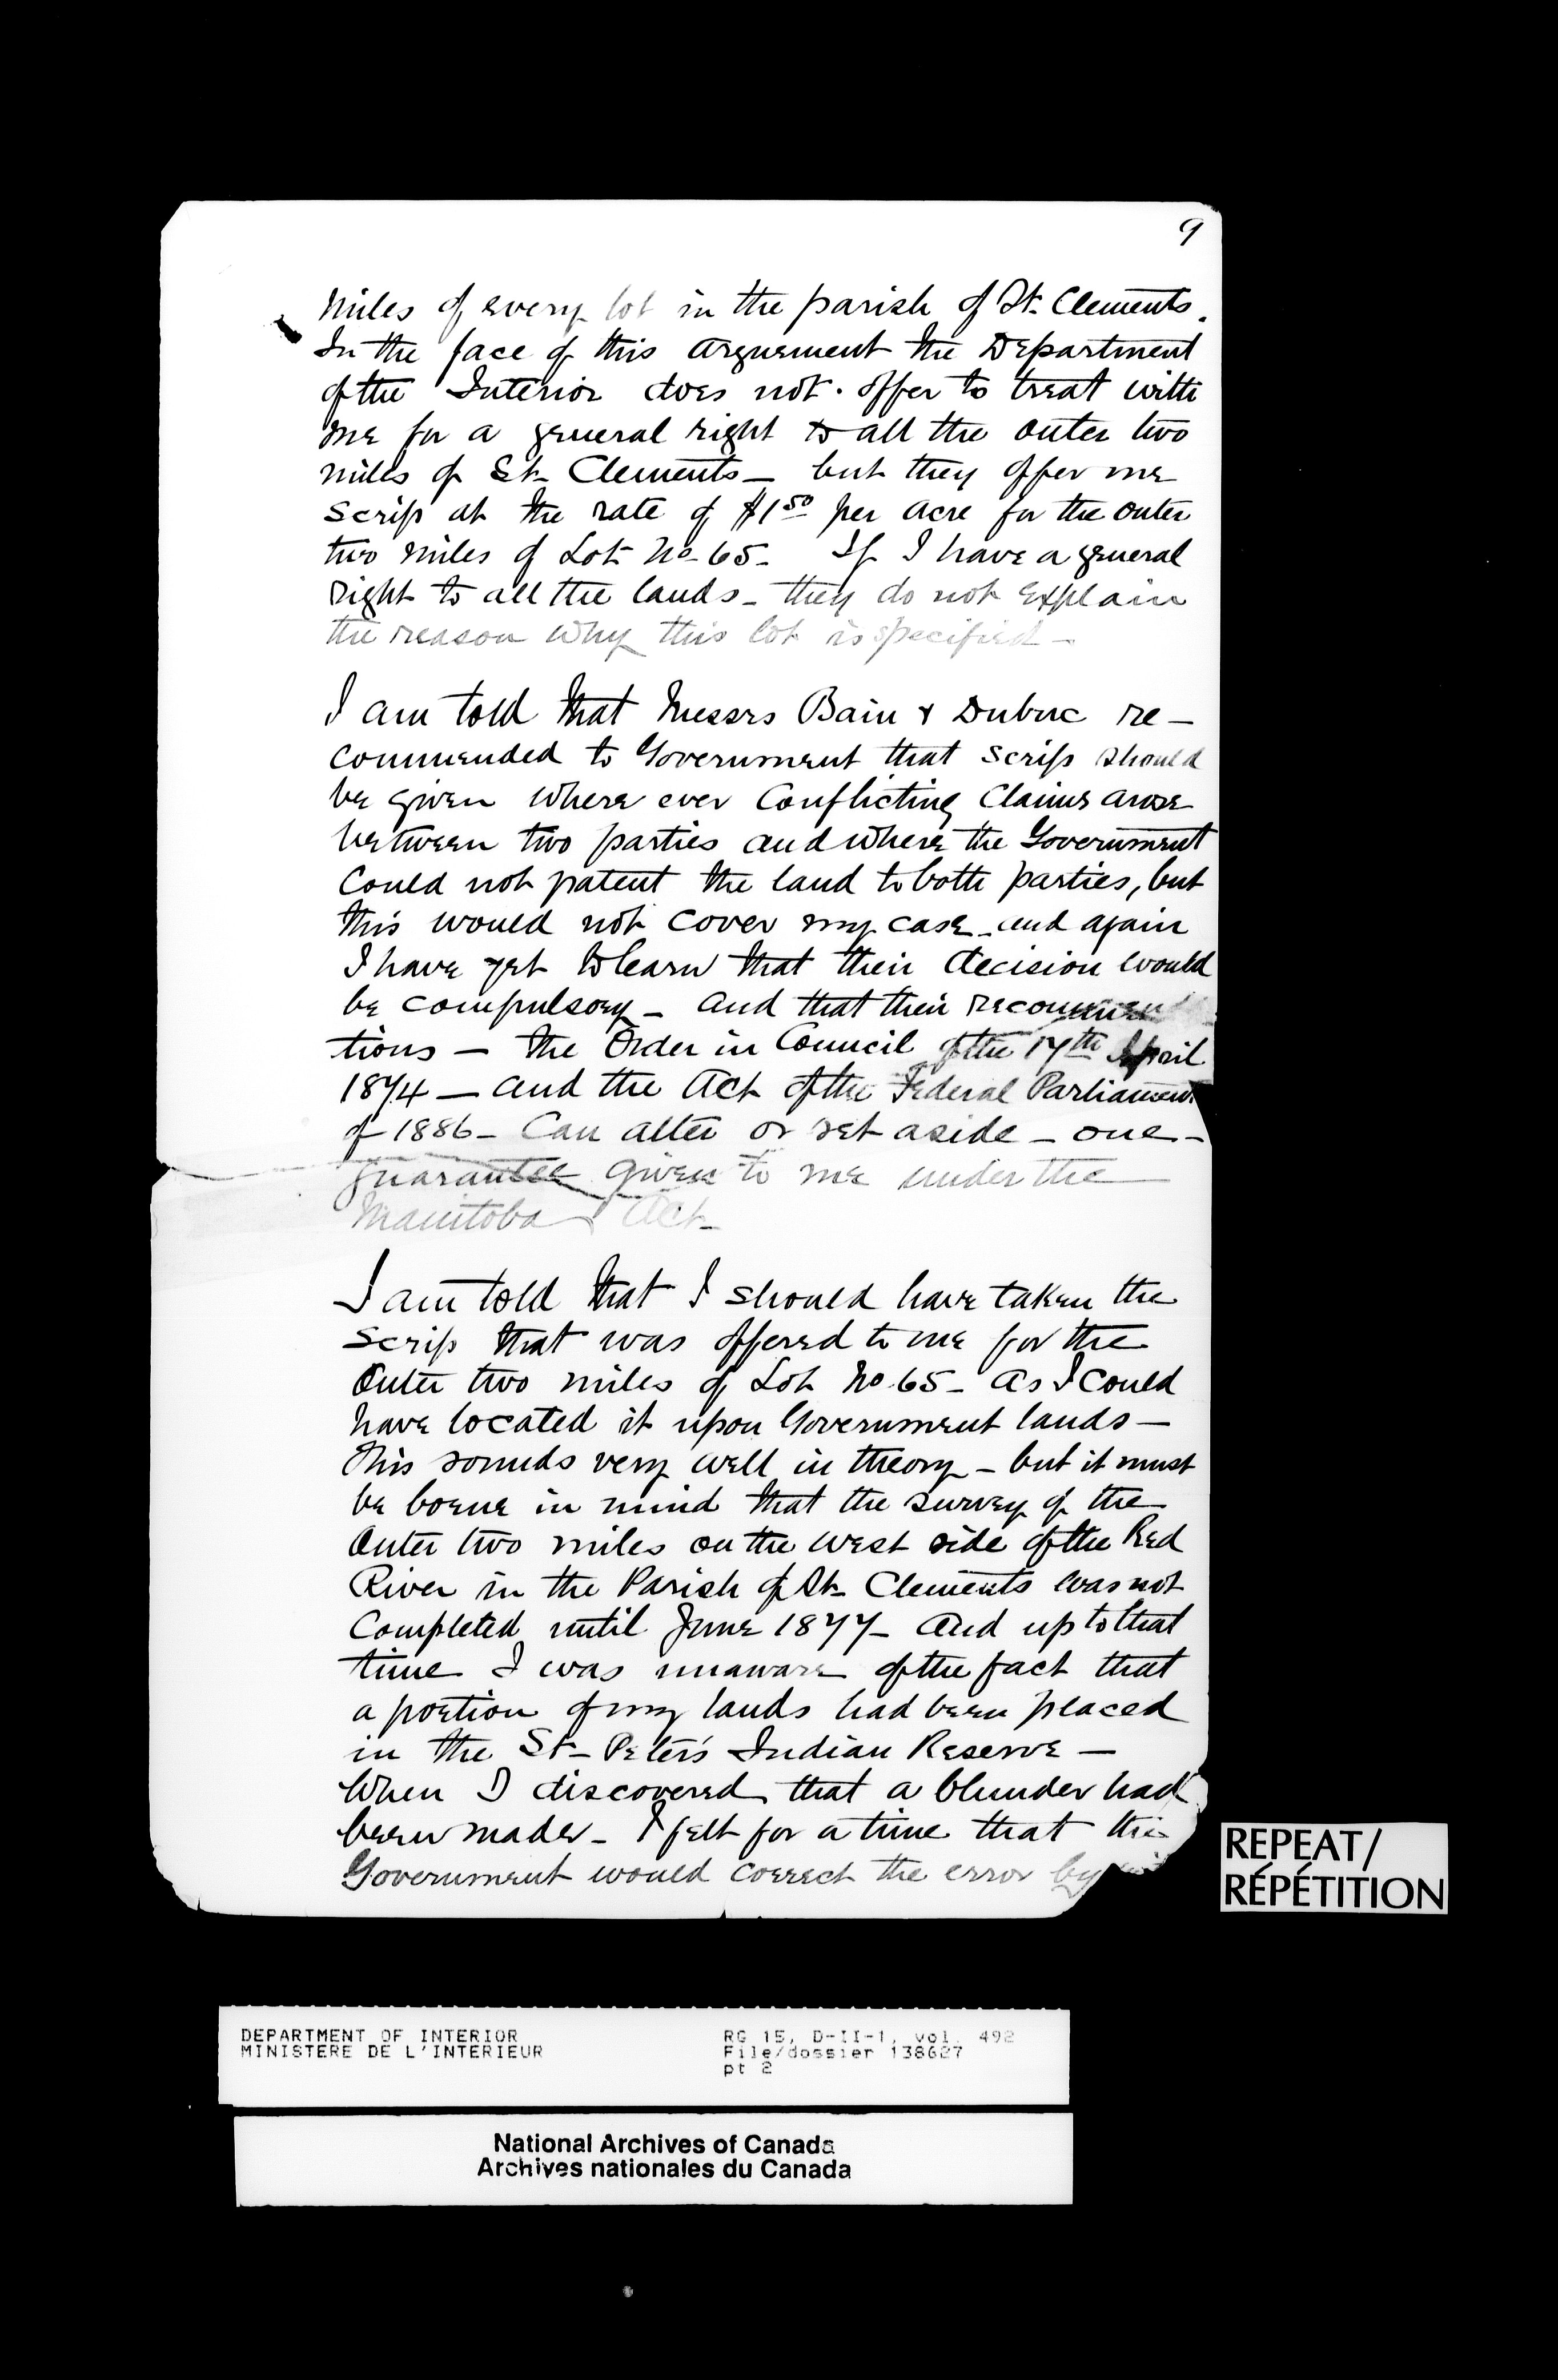 9
miles of every lot in the parish of St. Clements.
In the face of this arguement the Department
of the Interior does not offer to treat with
me for a general right to all the outer two
miles of St. Clements – but they offer me
scrip at the rate of $1 50 per acre for the outer
two miles of Lot No 65 – If I have a general
right to all the lands – they do not explain
the reason why this lot is specified –
I am told that Messrs Bain & Dubuc re–
commended to Government that scrip should
be given where ever conflicting claims arose
between two parties and where the Government
could not patent the land to both parties, but
this would not cover my case – and again
I have yet to learn that their decision would
be compulsory – and that their recommen
tions – the Order in Council of the 17th April
1874 – and the Act of the Federal Parliament
of 1886 – Can alter or set aside – one –
guarantee given to me under the
Manitoba Act –
I am told that I should have taken the
scrip that was offered to me for the
Outer two miles of Lot No 65 – as I could
have located it upon Government lands –
this sounds very well in theory – but it must
be borne in mind that the survey of the
Outer two miles on the west side of the Red
River in the Parish of St. Clements was not
Completed until June 1877 – and up to that
time I was unaware of the fact that
a portion of my lands had been placed
in the St. Peter's Indian Reserve –
When I discovered that a blunder had
been made – I felt for a time that the
Government would correct the error by
REPEAT/
RÉPÉTITION
DEPARTMENT OF INTERIOR RG 15, D-II-1, vol. 492
MINISTERE DE L'INTERIEUR File/dossier 138627
pt 2
National Archives of Canada
Archives nationales du Canada